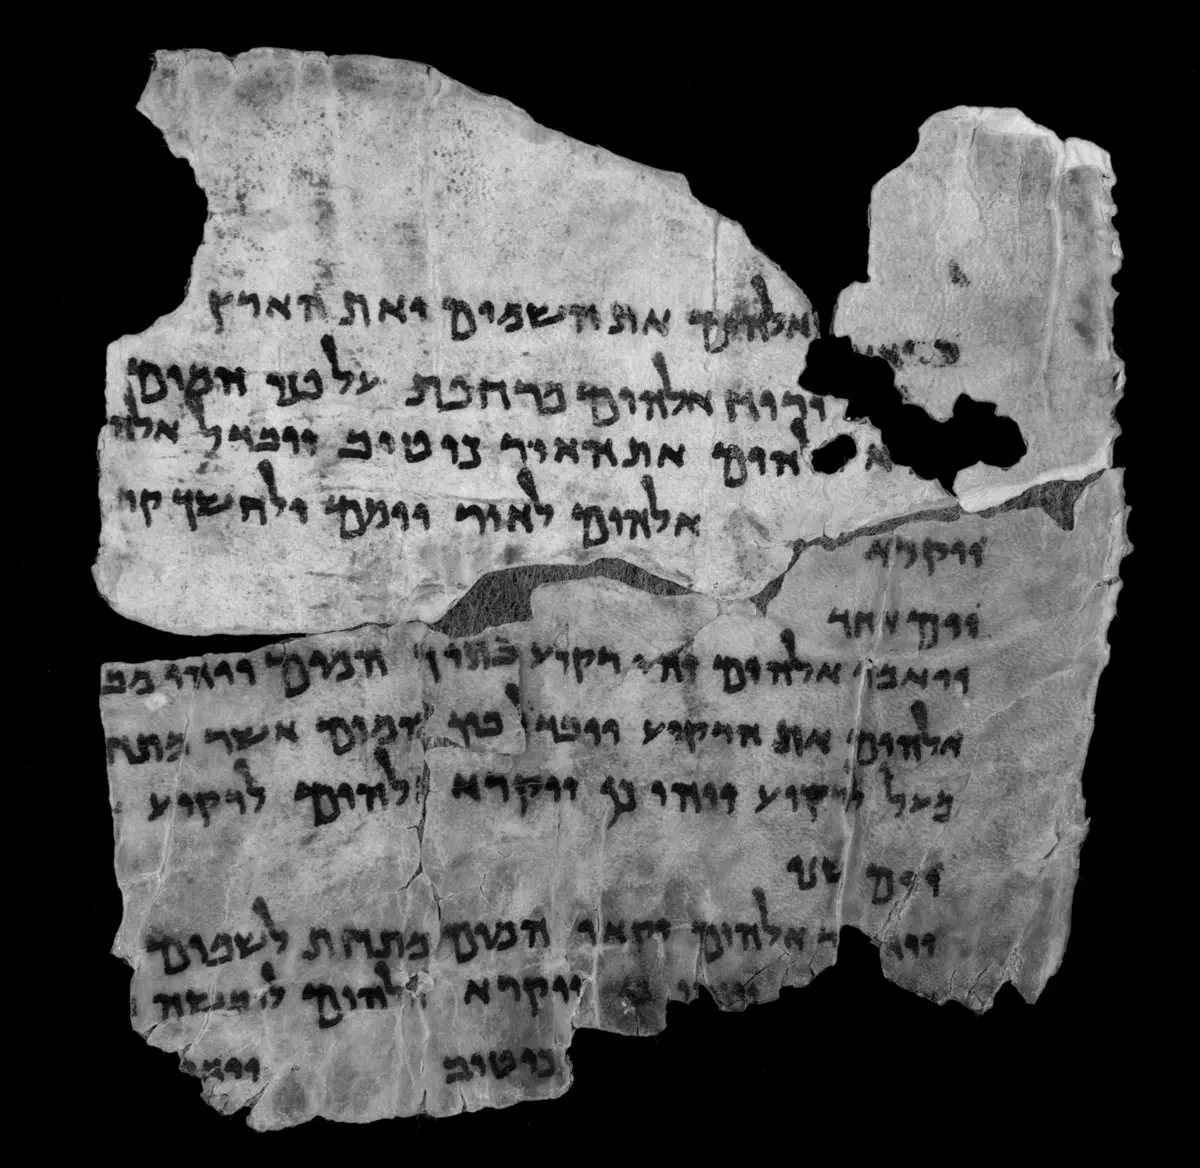 אלהים את השמים ואת הארץ
ורוח אלהים מרחפת על פני המים
אלהים את האור כי טוב ויבדל אלה
אלהים לאור יומם ולחשך קר
ויקרא
יום אחד
ויאמר אלהים יהי רקיע בתוך המים ויהי מב
אלהים את הרקיע ויבדל בין המים אשר מתח
מעל לרקיע ויהי כן ויקרא אלהים לרקיע
יום שני
אלהים יקאו המים מתחת לשמים
ויקרא אלהים ליבשה
כי טוב